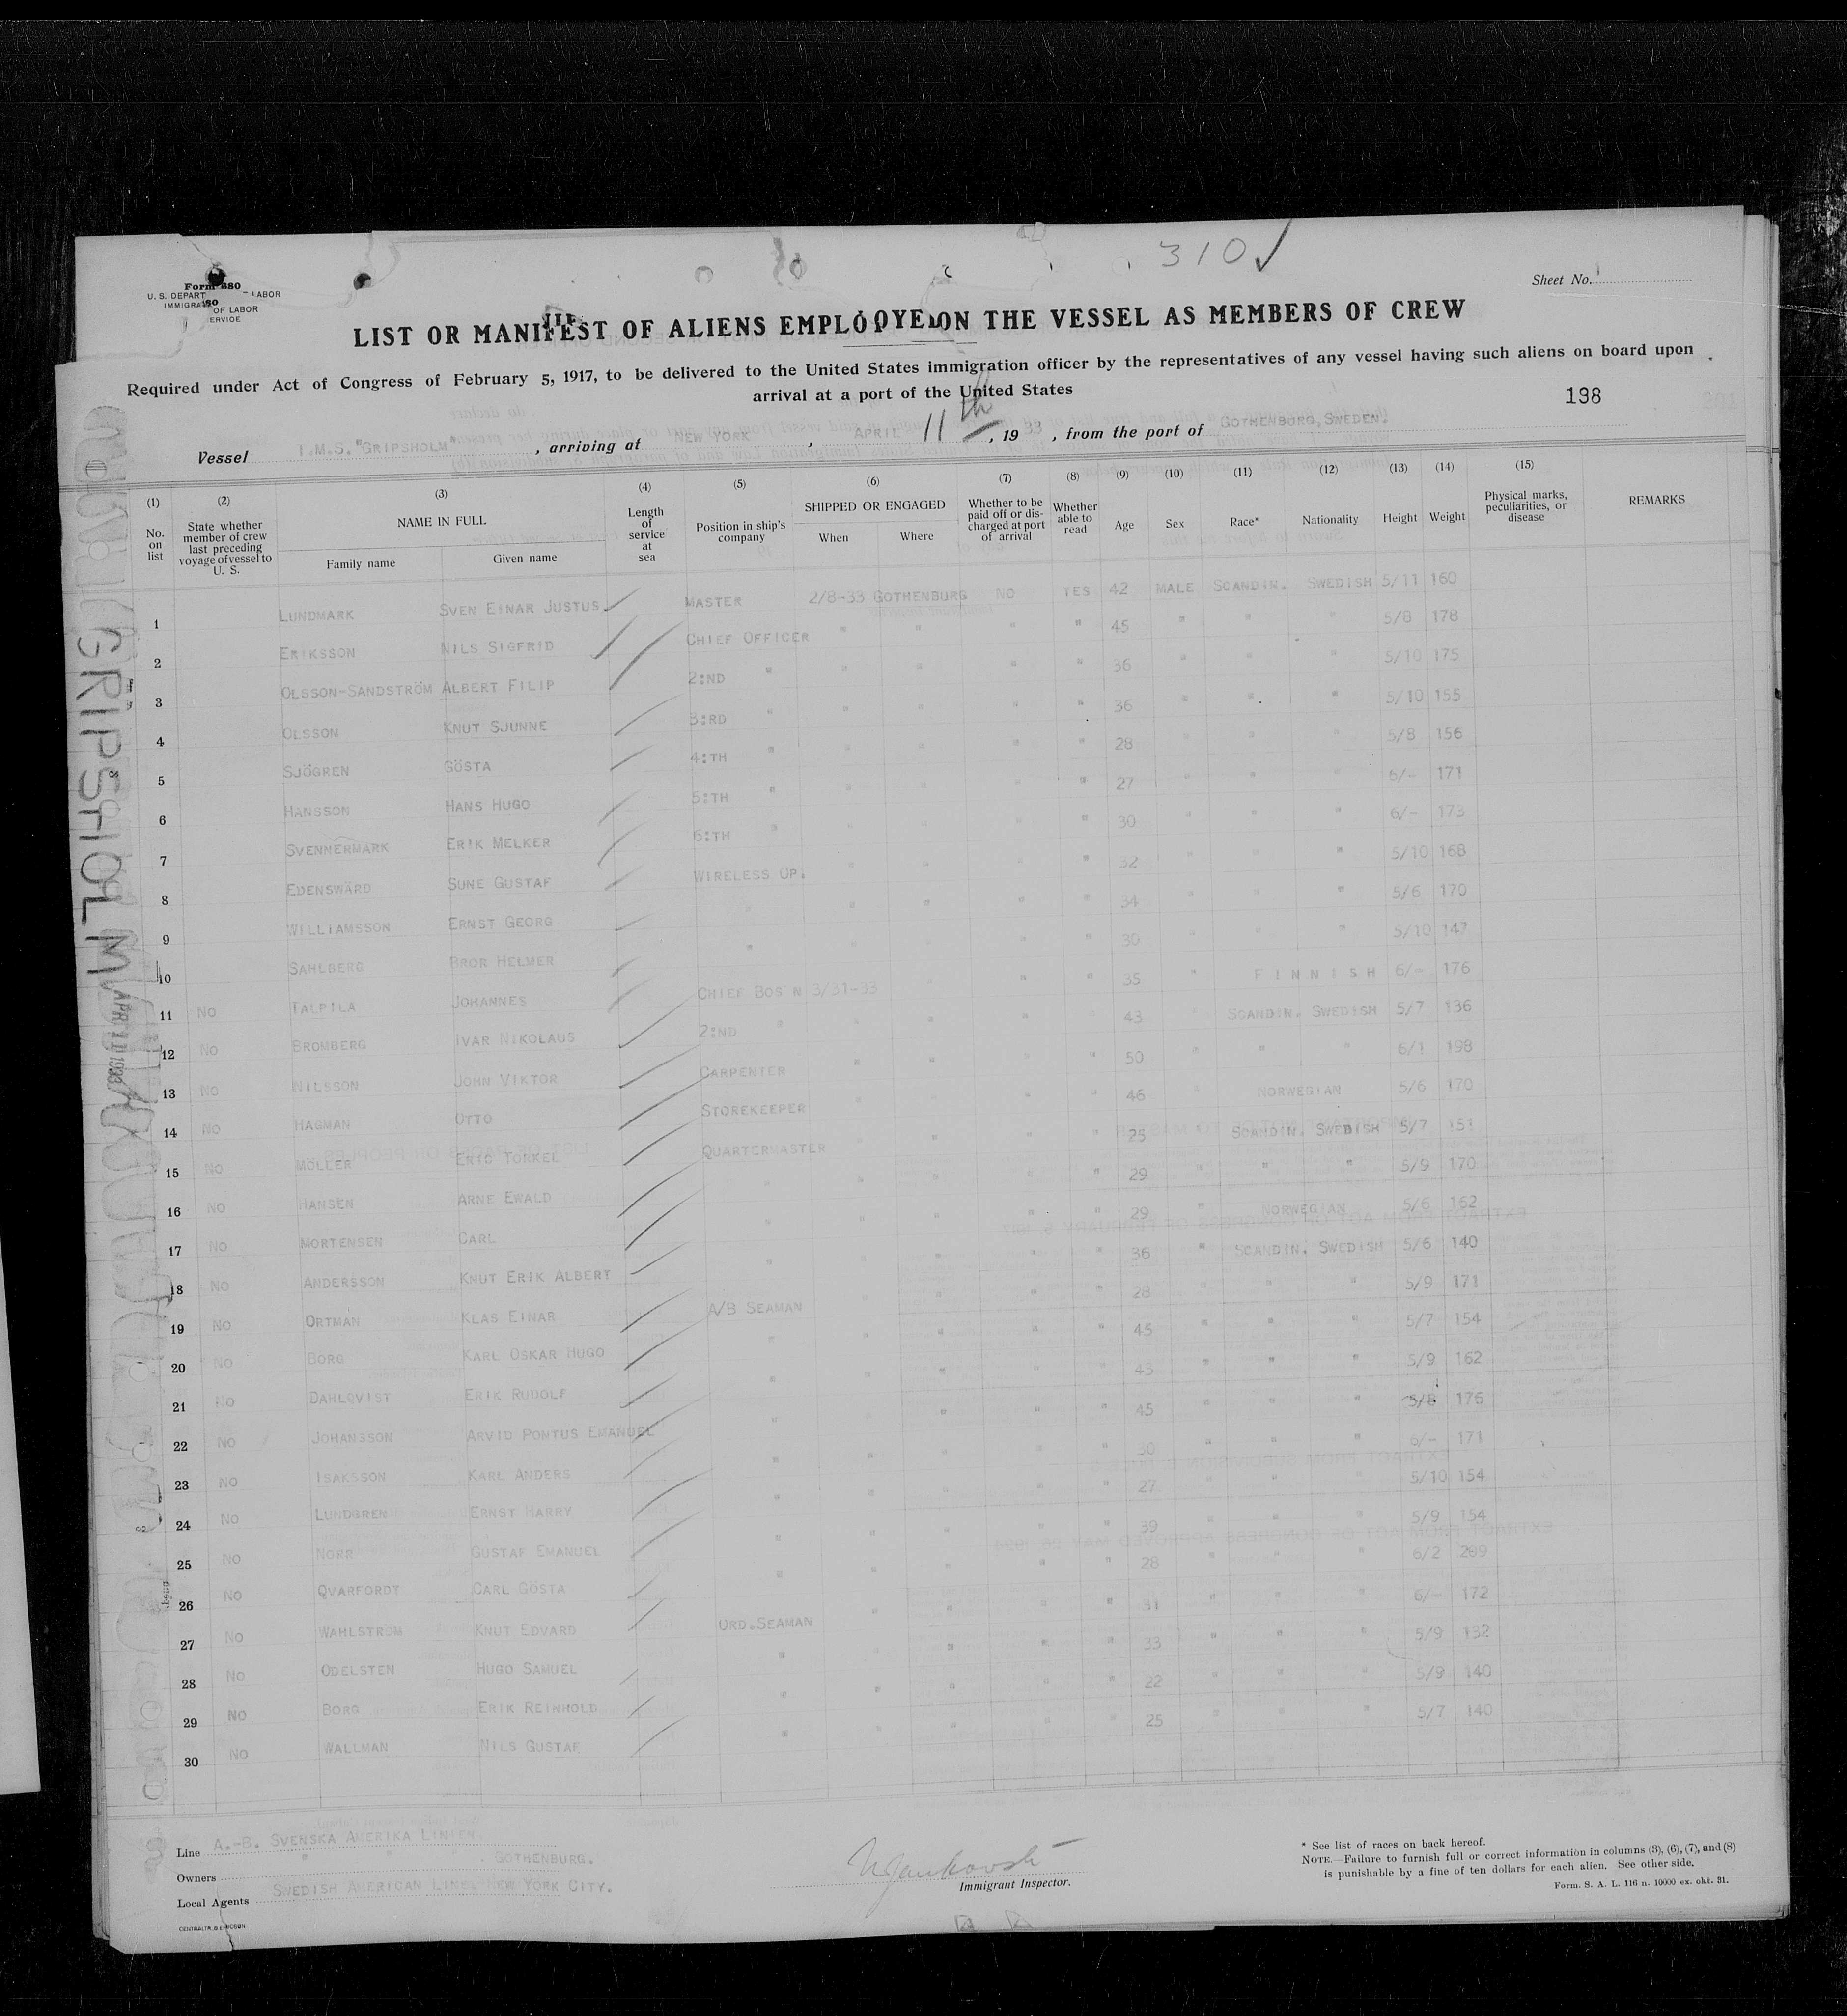 310✓
Form 680
U. S. DEPART LABOR
IMMIGRA OF LABOR
ERVICE
Sheet No.
LIST OR MANIFEST OF ALIENS EMPLOYED ON THE VESSEL AS MEMBERS OF CREW
Required under Act of Congress of February 5, 1917, to be delivered to the United States immigration officer by the representatives of any vessel having such aliens on board upon
arrival at a port of the United States
198
Vessel I.M.S."GRIPSHOLM", arriving at NEW YORK, APRIL 11th, 1933, from the port of GOTHENBURG, SWEDEN.
(1) (2) (3) (4) (5) (6) (7) (8) (9) (10) (11) (12) (13) (14) (15)
No. on list
State whether member of crew last preceding voyage of vessel to U. S.
NAME IN FULL
Family name Given name
Length of service at sea
Position in ship's company
SHIPPED OR ENGAGED
When Where
Whether to be paid off or discharged at port of arrival
Whether able to read
Age Sex Race* Nationality Height Weight
Physical marks, peculiarities, or disease
REMARKS
1 LUNDMARK SVEN EINAR JUSTUS MASTER 2/8-33 GOTHENBURG NO YES 42 MALE SCANDIN. SWEDISH 5/11 160
2 ERIKSSON NILS SIGFRID CHIEF OFFICER " " " " 45 " " " 5/8 178
3 OLSSON-SANDSTRÖM ALBERT FILIP 2:ND " " " " " 36 " " " 5/10 175
4 OLSSON KNUT SJUNNE 3:RD " " " " " 36 " " " 5/10 155
5 SJÖGREN GÖSTA 4:TH " " " " " 28 " " " 5/8 156
6 HANSSON HANS HUGO 5:TH " " " " " 27 " " " 6/- 171
7 SVENNERMARK ERIK MELKER 6:TH " " " " " 30 " " " 6/- 173
8 EDENSWÄRD SUNE GUSTAF WIRELESS OP. " " " " 32 " " " 5/10 168
9 WILLIAMSSON ERNST GEORG " " " " " 34 " " " 5/6 170
10 SAHLBERG BROR HELMER " " " " " 30 " " " 5/10 147
11 NO TALPILA JOHANNES CHIEF BOS N 3/31-33 " " " 35 " FINNISH 6/- 176
12 NO BROMBERG IVAR NIKOLAUS 2:ND " " " " " 43 " SCANDIN. SWEDISH 5/7 136
13 NO NILSSON JOHN VIKTOR CARPENTER " " " " 50 " " " 6/1 198
14 NO HAGMAN OTTO STOREKEEPER " " " " 46 " NORWEGIAN 5/6 170
15 NO MÖLLER ERIC TORKEL QUARTERMASTER " " " " 25 " SCANDIN. SWEDISH 5/7 151
16 NO HANSEN ARNE EWALD " " " " " 29 " " " 5/9 170
17 NO MORTENSEN CARL " " " " " 29 " NORWEGIAN 5/6 162
18 NO ANDERSSON KNUT ERIK ALBERT " " " " " 36 " SCANDIN. SWEDISH 5/6 140
19 NO ORTMAN KLAS EINAR A/B SEAMAN " " " " 28 " " " 5/9 171
20 NO BORG KARL OSKAR HUGO " " " " " 45 " " " 5/7 154
21 NO DAHLQVIST ERIK RUDOLF " " " " " 43 " " " 5/9 162
22 NO JOHANSSON ARVID PONTUS EMANUEL " " " " " 45 " " " 5/8 176
23 NO ISAKSSON KARL ANDERS " " " " " 30 " " " 6/- 171
24 NO LUNDGREN ERNST HARRY " " " " " 27 " " " 5/10 154
25 NO NORR GUSTAF EMANUEL " " " " " 39 " " " 5/9 154
26 NO QVARFORDT CARL GÖSTA " " " " " 28 " " " 6/2 209
27 NO WAHLSTROM KNUT EDVARD ORD.SEAMAN " " " " 31 " " " 6/- 172
28 NO ODELSTEN HUGO SAMUEL " " " " " 33 " " " 5/9 132
29 NO BORG ERIK REINHOLD " " " " " 22 " " " 5/9 140
30 NO WALLMAN NILS GUSTAF " " " " " 25 " " " 5/7 140
GRIPSHOLM
APR 11 1933
Line A.-B. SVENSKA AMERIKA LINIEN.
Owners " " " . GOTHENBURG.
Local Agents SWEDISH AMERICAN LINE, NEW YORK CITY.
Immigrant Inspector.
* See list of races on back hereof.
NOTE.—Failure to furnish full or correct information in columns (3), (6), (7), and (8)
is punishable by a fine of ten dollars for each alien. See other side.
Form. S. A. L. 116 n. 10000 ex. okt. 31.